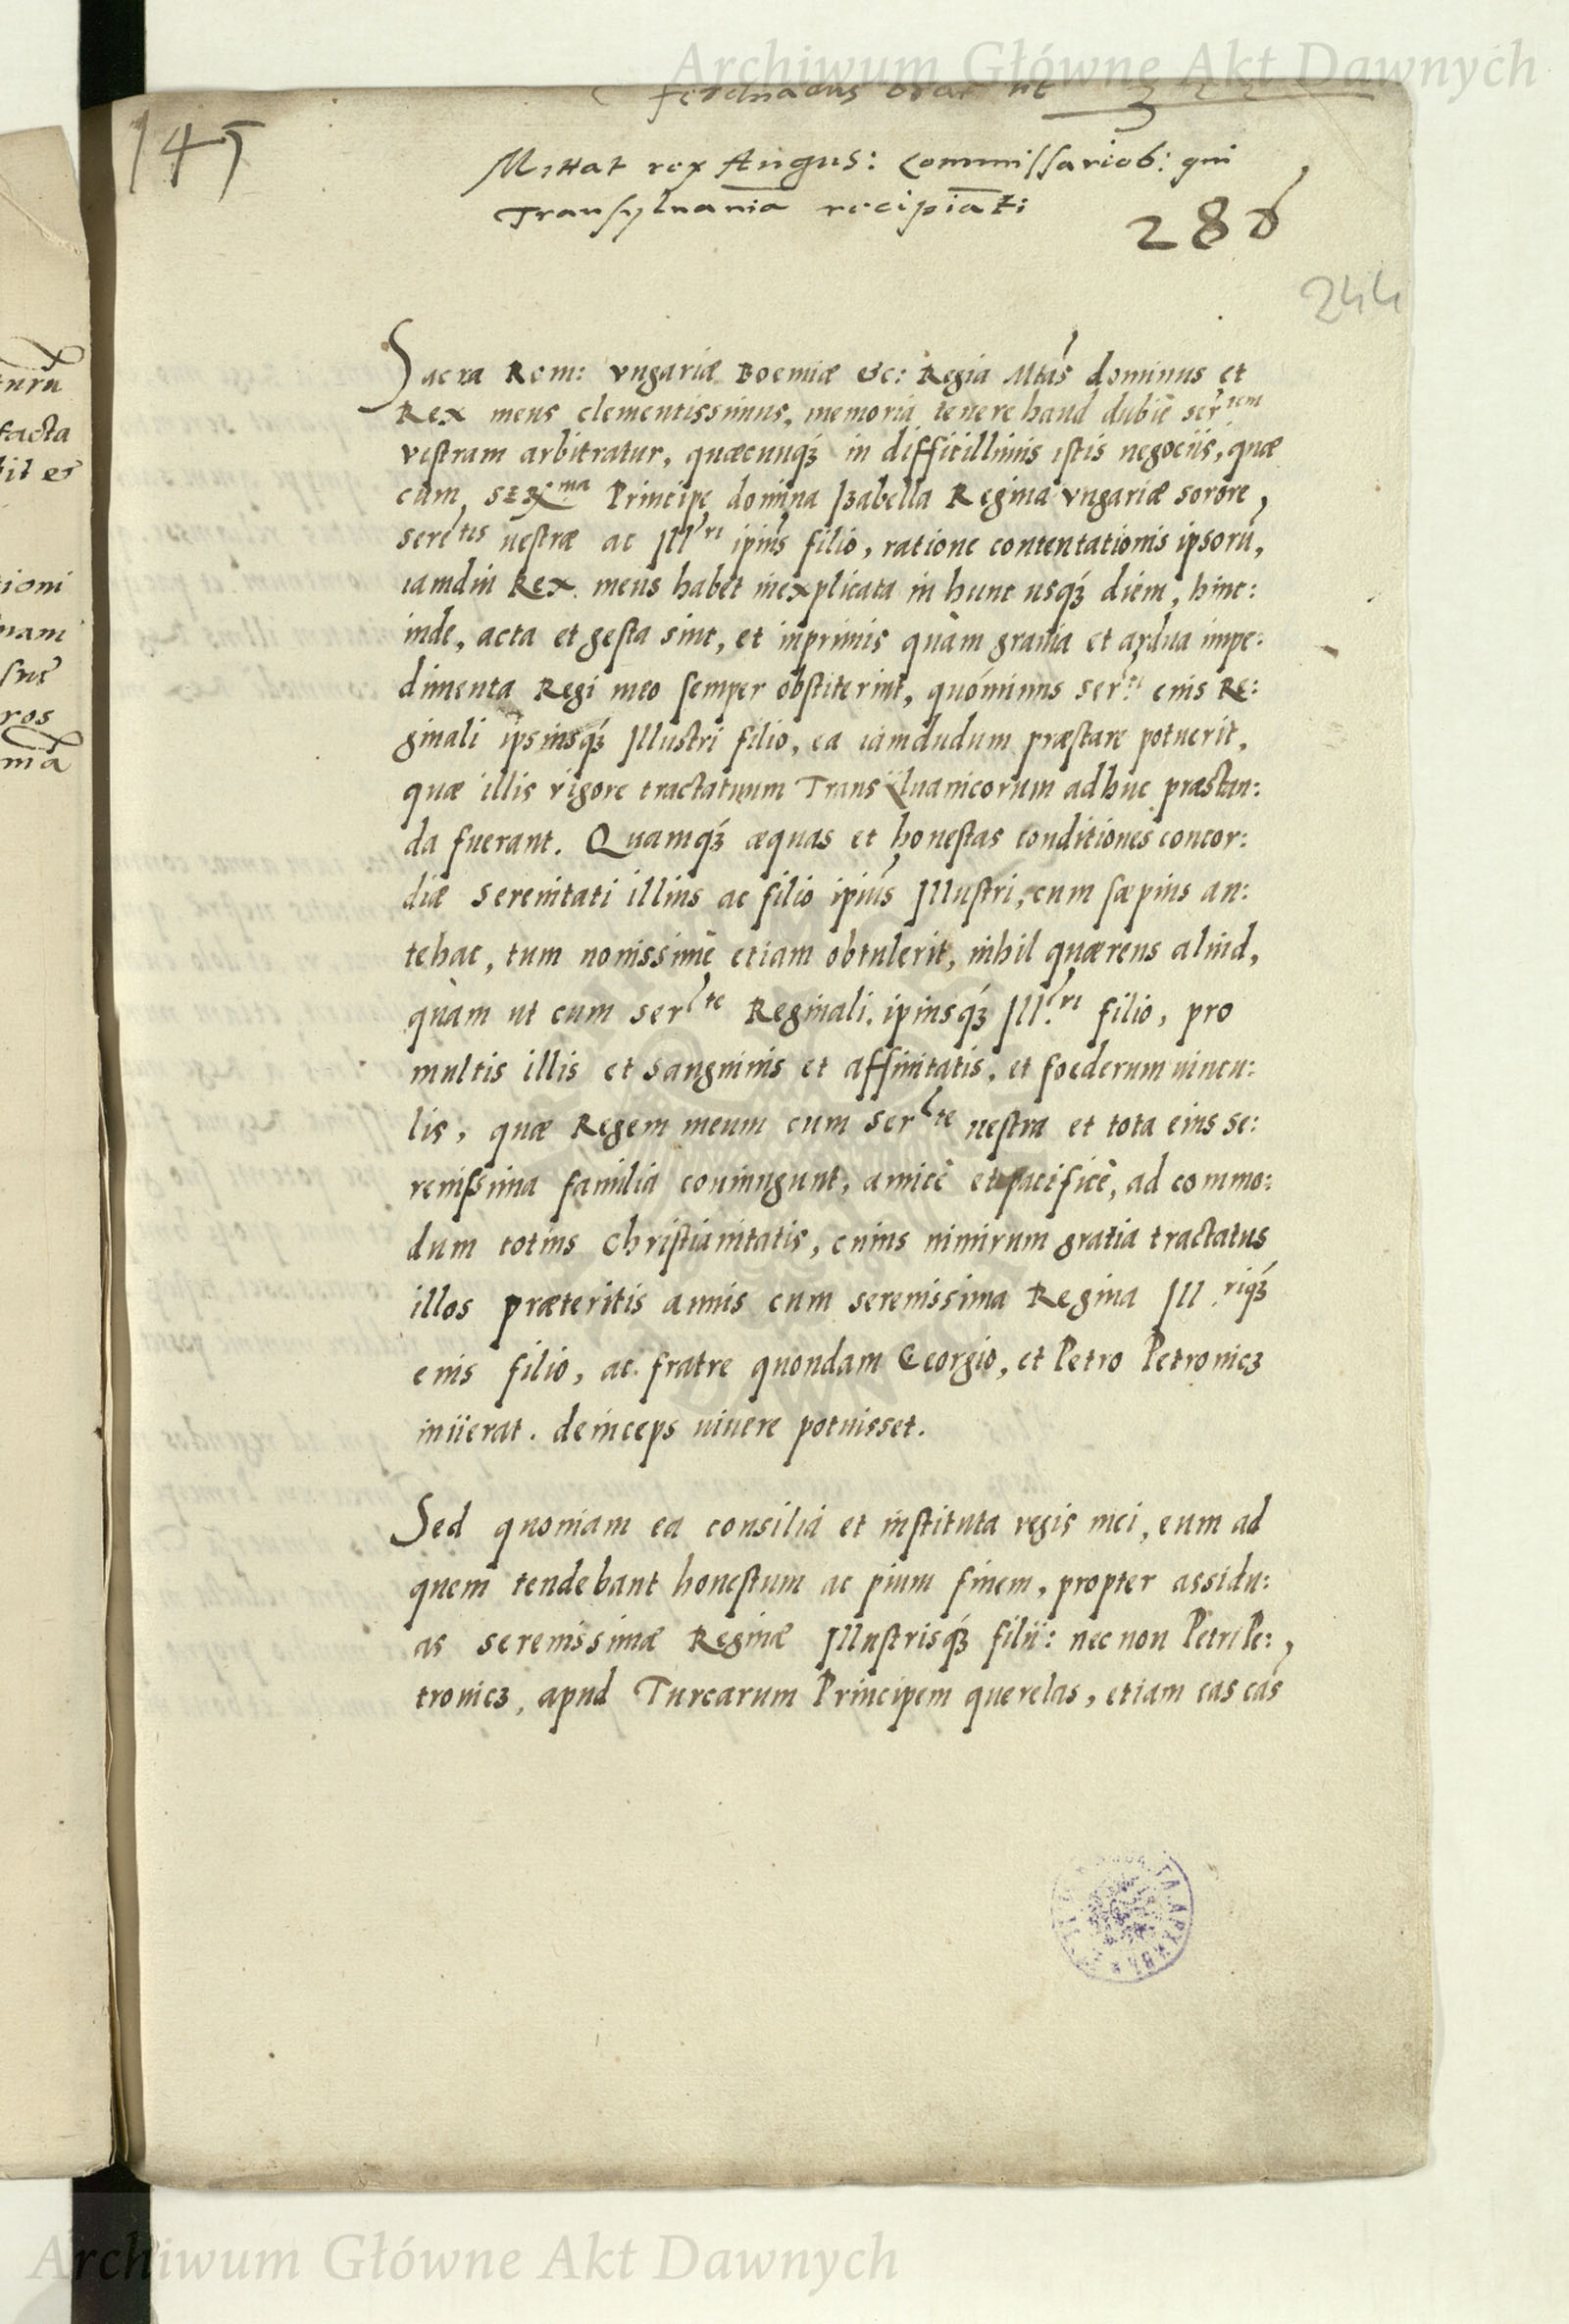 Archiwum Główne Akt Dawnych
Ferdinandus orat ut
145
Mittat rex Augus: Commissariob: qui
Transyluaniā recipiāt:
286
244
Sacra Rom: vngariæ Boemiæ &c: Regia Mtas dominus et
Rex meus clementissimus, memoria tenere haud dubiè serᵗᵉᵐ
vestram arbitratur, quæcunqꝫ in difficillimis istis negociis, quæ
cum serᵐᵃ Principe domina Izabella Regina vngariæ sorore
serᵗⁱˢ uestræ ac Illʳⁱ ipius filio, ratione contentationis ipsorū,
iamdiu Rex meus habet inexplicata in hunc usqꝫ diem, hinc:
inde, acta et gesta sint, et inprimis quàm grauia et ardua impe:
dimenta Regi meo semper obstiterint, quóminus serᵗⁱ eius Re:
ginali ipsiusqꝫ Illustri filio, ea iamdudum præstare potuerit,
quæ illis rigore tractatuum Transÿluanicorum adhuc præstan:
da fuerant. Quamqꝫ æquas et honestas conditiones concor:
diæ serenitati illius ac filio ipius Illustri, cum sæpius an:
tehac, tum nouissimè etiam obtulerit, nihil quærens aliud,
quàm ut cum serᵗᵉ Reginali, ipiusqꝫ Illʳⁱ filio, pro
multis illis et sanguinis et affinitatis, et foederum uincu:
lis, quæ Regem meum cum serᵗᵉ uestra et tota eius se:
renissima familia coniungunt, amicè et pacificè, ad commo:
dum totius Christianitatis, cuius nimirum gratia tractatus
illos præteritis annis cum serenissima Regina Ill.riqꝫ
eius filio, ac fratre quondam Georgio, et Petro Petrouicz
iniierat, deinceps uiuere potuisset.
Sed quoniam ea consilia et instituta regis mei, eum ad
quem tendebant honestum ac pium finem, propter assidu:
as serenissimæ Reginæ Illustrisqꝫ filii: nec non Petri Pe:
trouicz, apud Turcarum Principem querelas, etiam eas cas
Archiwum Główne Akt Dawnych